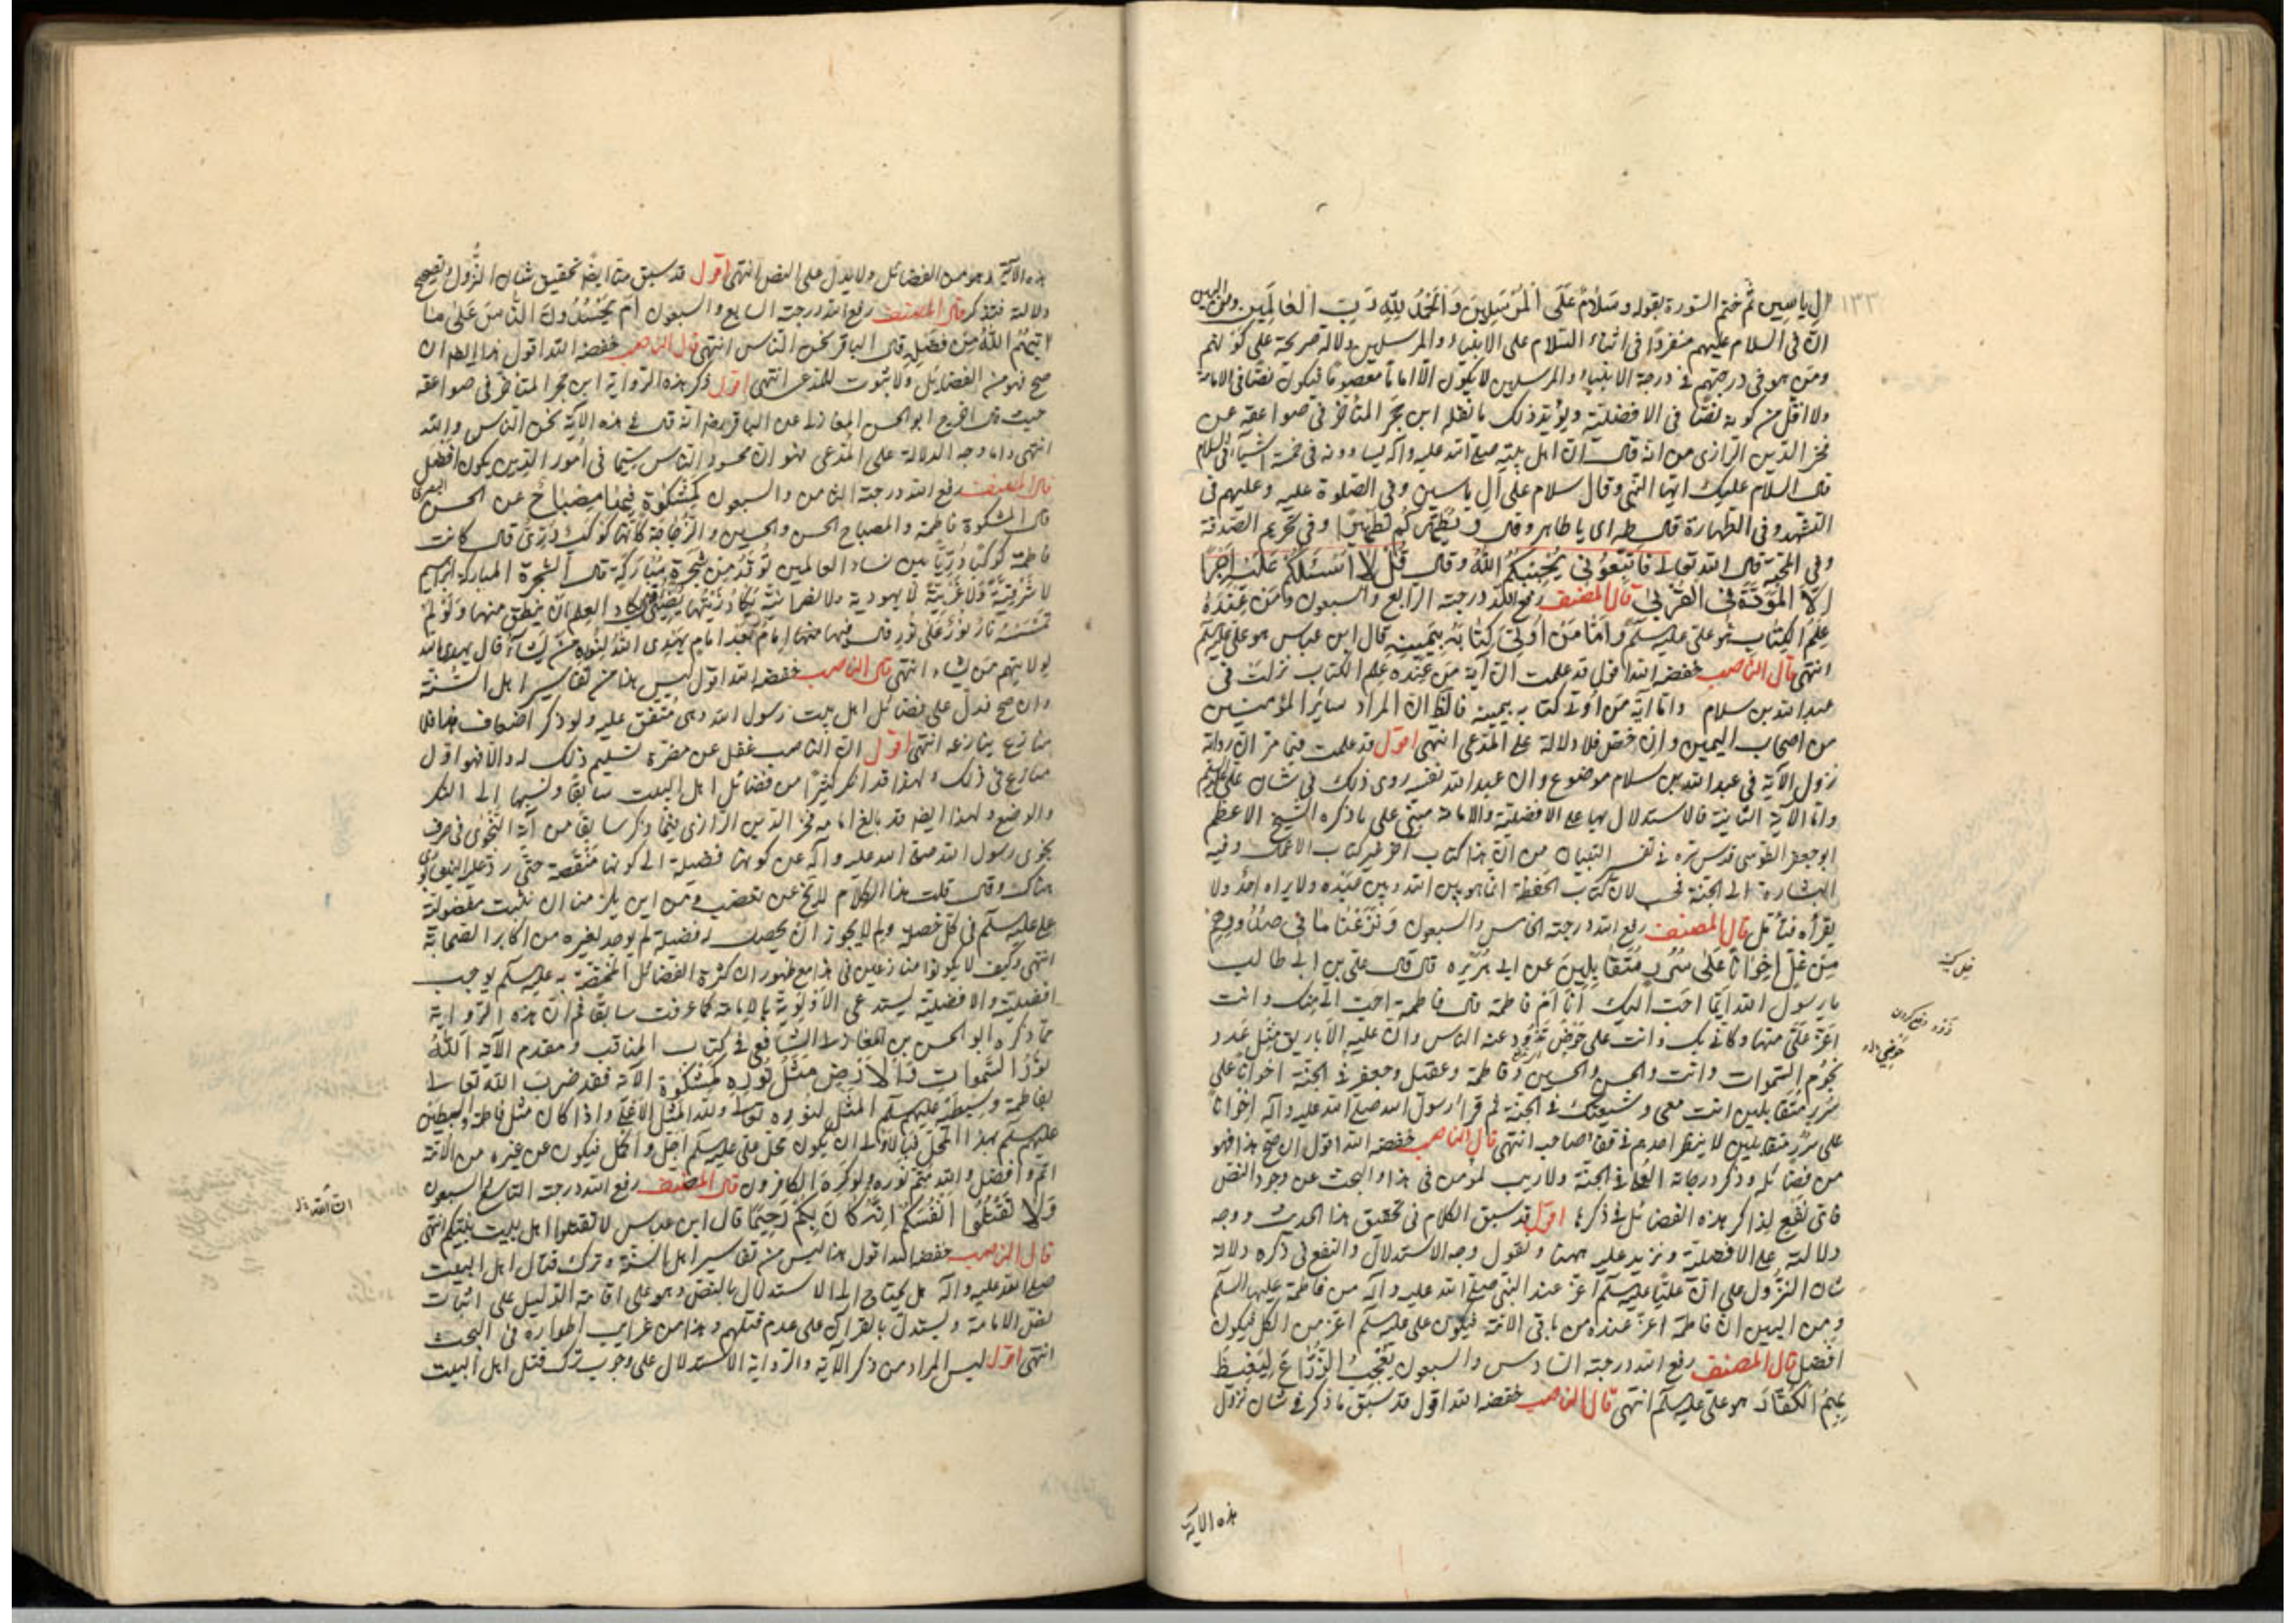 ١٣٣
ال ياسين ثم ختم السورة بقوله وسلام على المرسلين والحمد لله رب العالمين ومن البين
ان في السلام عليهم منفردا في اثناء السلام على الانبياء والمرسلين دلالة صريحة على كونهم
ومن هو في درجتهم في درجة الانبياء والمرسلين لا يكون الا اماما معصوما فيكون نصا في الامامة
ولا اقل من كونه نصا في الافضلية ويؤيد ذلك ما نقله ابن حجر المتأخر في صواعقه عن
فخر الدين الرازي من انه قال ان اهل بيته صلى الله عليه وآله يساوونه في خمسة اشياء في السلام
قال السلام عليك ايها النبي وقال سلام على آل ياسين وفي الصلوة عليه وعليهم في
التشهد وفي الطهارة قال طه اى يا طاهر وقال ويطهركم تطهيرا وفي تحريم الصدقة
وفي المحبة قال الله تعالى فاتبعوني يحببكم الله وقال قل لا اسئلكم عليه اجرا
الا المودة في القربى قال المصنف رفع الله درجته الرابع والسبعون ومن عنده
علم الكتاب هو على عليه السلم واما من اوتي كتابه بيمينه قال ابن عباس هو على عليه السلم
انتهى قال الناصب خفضه الله اقول قد علمت ان آية من عنده علم الكتاب نزلت في
عبد الله بن سلام واما آية من اوتي كتابه بيمينه فالظ ان المراد سائر المؤمنين
من اصحاب اليمين وان خص فلا دلالة على المدعى انتهى اقول قد علمت فيما مر ان رواية
نزول الآية في عبد الله بن سلام موضوع وان عبد الله نفسه روى ذلك في شان على عليه السلم
واما الآية الثانية فالاستدلال بها على الافضلية والامامة مبنى على ما ذكره الشيخ الاعظم
ابو جعفر الطوسي قدس سره في تفسير التبيان من ان هذا كتاب آخر غير كتاب الاعمال وفيه
البشارة الى الجنة لان كتاب الحفظة انما هو بين الله وبين عبده ولا يراه احد ولا
يقرأه فتأمل قال المصنف رفع الله درجته الخامس والسبعون ونزعنا ما في صدورهم
من غل اخوانا على سرر متقابلين عن ابي هريرة قال قال علي بن ابي طالب
يا رسول الله ايما احب اليك انا ام فاطمة قال فاطمة احب الى منك وانت
اعز علي منها وكأني بك وانت على حوضي تذود عنه الناس وان عليه الاباريق مثل عدد
نجوم السموات وانت والحسن والحسين وفاطمة وعقيل وجعفر في الجنة اخوانا على
سرر متقابلين انت معى وشيعتك في الجنة ثم قرأ رسول الله صلى الله عليه وآله اخوانا
على سرر متقابلين لا ينظر احدهم في قفا صاحبه انتهى قال الناصب خفضه الله اقول ان صح هذا فهو
من فضائله وذكر درجاته العلى في الجنة ولا ريب لمؤمن في هذا والبحث عن وجود النص
فاى نفع لذاكر هذه الفضائل في ذكرها اقول قد سبق الكلام في تحقيق هذا الحديث ووجه
دلالته على الافضلية ونزيد عليه ههنا ونقول وجه الاستدلال والنفع في ذكره دلالة
شان النزول على ان عليا عليه السلم اعز عند النبي صلى الله عليه وآله من فاطمة عليها السلم
ومن البين ان فاطمة اعز عنده من باقي الامة فيكون على عليه السلم اعز من الكل فيكون
افضل قال المصنف رفع الله درجته السادس والسبعون يعجب الزراع ليغيظ
بهم الكفار هو على عليه السلم انتهى قال الناصب خفضه الله اقول قد سبق ما ذكر في شان نزول
غل كينه
ذود دفع كردن
هذه الآية
هذه الآية وهو من الفضائل ولا يدل على النص انتهى اقول قد سبق منا ايضا تحقيق شان النزول وتصحيح
دلالته فتذكر قال المصنف رفع الله درجته السابع والسبعون ام يحسدون الناس على ما
آتيهم الله من فضله قال الباقر نحن الناس انتهى قال الناصب خفضه الله اقول
صح فهو من الفضائل ولا ثبوت للمدعى انتهى اقول ذكر هذه الرواية ابن حجر المتأخر في صواعقه
حيث قال اخرج ابو الحسن المغازلى عن الباقر رضه انه قال في هذه الآية نحن الناس والله
انتهى واما وجه الدلالة على المدعى فهو ان محسود الناس سيما في امور الدين يكون افضل
قال المصنف رفع الله درجته الثامن والسبعون كمشكوة فيها مصباح عن الحسن البصرى
قال المشكوة فاطمة والمصباح الحسن والحسين والزجاجة كأنها كوكب درى قال كانت
فاطمة كوكبا دريا بين نساء العالمين توقد من شجرة مباركة قال الشجرة المباركة ابراهيم
لا شرقية ولا غربية لا يهودية ولا نصرانية يكاد زيتها يضيئ قال يكاد العلم ان ينطق منها ولو لم
تمسسه نار نور على نور قال فيها منها امام بعد امام يهدى الله لنوره من يشاء قال يهدى الله
لولايتهم من يشاء انتهى قال الناصب خفضه الله اقول ليس هذا من تفاسير اهل السنة
وان صح فدل على فضائل اهل بيت رسول الله وهى متفق عليه ولو ذكر اضعاف هذا فلا
منازع ينازعه انتهى اقول ان الناصب غفل عن مضرة تسليم ذلك له والا فهو اول
منازع في ذلك ولهذا قد انكر كثيرا من فضائل اهل البيت سابقا ونسبها الى النكر
والوضع ولهذا ايضه قد بالغ امامه فخر الدين الرازى فيما ذكر سابقا من آية النجوى في صرف
نجوى رسول الله صلى الله عليه وآله عن كونها فضيلة الى كونها منقصة حتى رد عليه النيسابورى
هناك وقال قلت هذا الكلام لا يخ عن تعصب ومن اين يلزمنا ان نثبت مفضولية
على عليه السلم في كل خصلة ولم لا يجوز ان يحصل له فضيلة لم يوجد لغيره من اكابر الصحابة
انتهى وكيف لا يكونوا منازعين في هذا مع ظهور ان كثرة الفضائل المختصة به عليه السلم يوجب
افضليته والافضلية يستدعى الاولوية بالامامة كما عرفت سابقا ثم ان هذه الرواية
مما ذكره ابو الحسن بن المغازلى الشافعى في كتاب المناقب ومقدم الآية الله
نور السموات والارض مثل نوره كمشكوة الآية فقد ضرب الله تعالى
بفاطمة وسبطيه عليهم السلم المثل لنوره تعالى ولله المثل الاعلى واذا كان مثل فاطمة والسبطين
عليهم السلم بهذا المحل فبالاولى ان يكون محل على عليه السلم اجل واكمل فيكون عن غيره من الامة
اتم وافضل والله متم نوره ولو كره الكافرون قال المصنف رفع الله درجته التاسع والسبعون
ولا تقتلوا انفسكم ان الله كان بكم رحيما قال ابن عباس لا تقتلوا اهل بيت نبيكم انتهى
قال الناصب خفضه الله اقول هذا ليس من تفاسير اهل السنة وترك قتال اهل البيت
صلى الله عليه وآله هل يحتاج الى الاستدلال بالنص وهو على اقامة الدليل على اثبات
نص الامامة ويستدل بالقرآن على عدم قتلهم وهذا من غرايب اطواره في البحث
انتهى اقول ليس المراد من ذكر الآية والرواية الاستدلال على وجوب ترك قتل اهل البيت